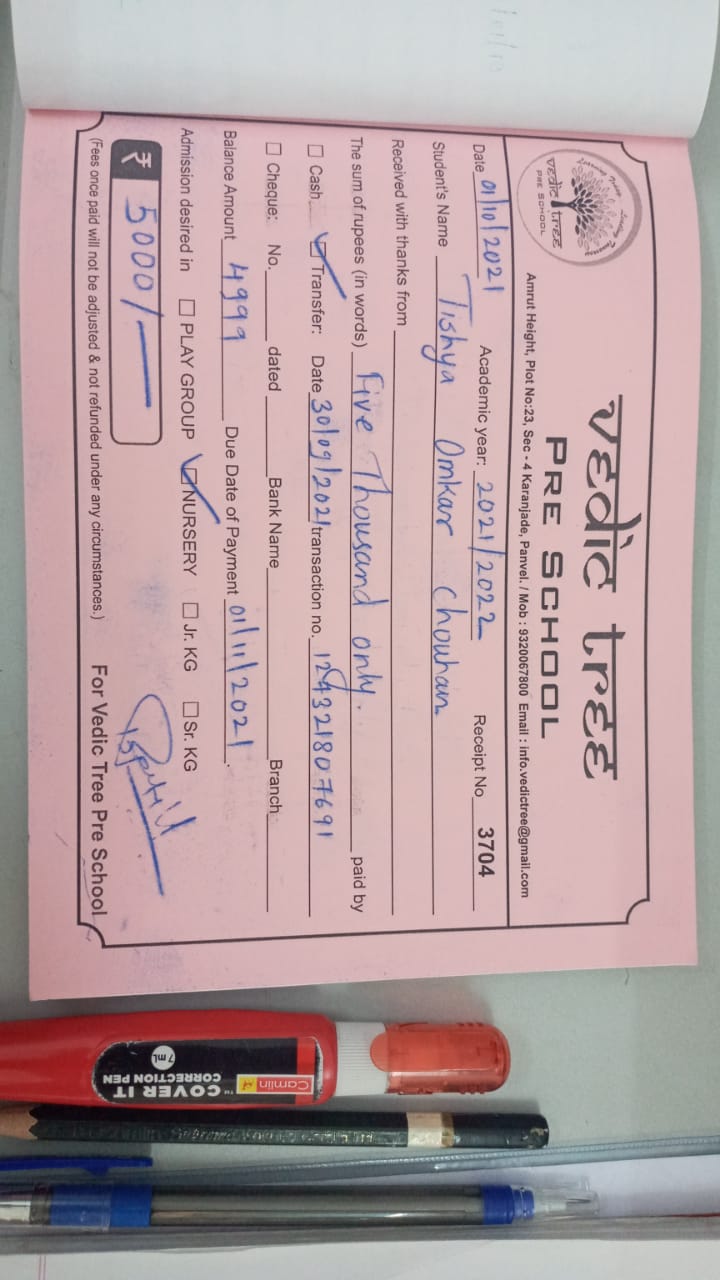 vedic tree
PRE SCHOOL
vedic tree
PRE SCHOOL
Amrut Height, Plot No:23, Sec - 4 Karanjade, Panvel. / Mob : 9320067800 Email : info.vedictree@gmail.com
Date 01/10/2021 Academic year: 2021/2022 Receipt No 3704
Student's Name Tishya Omkar Chouhan
Received with thanks from
The sum of rupees (in words) Five Thousand only. paid by
☐ Cash ☑ Transfer: Date 30/09/2021 transaction no.
☐ Cheque: No. dated Bank Name Branch
Balance Amount 4999 Due Date of Payment 01/11/2021.
Admission desired in ☐ PLAY GROUP ☑ NURSERY ☐ Jr. KG ☐ Sr. KG
₹ 5000/-
(Fees once paid will not be adjusted & not refunded under any circumstances.) For Vedic Tree Pre School
Camlin
COVER IT™
CORRECTION PEN
7 mL